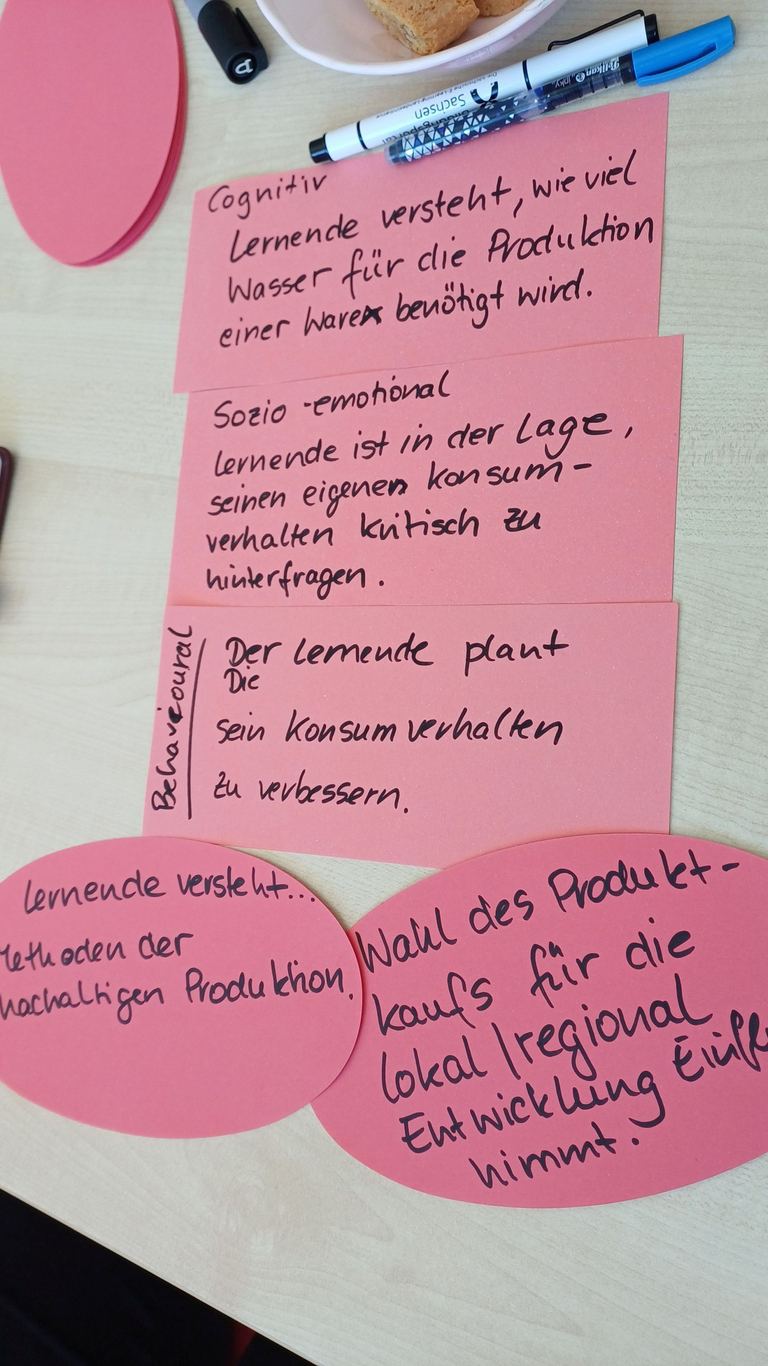 Sachsen
Pelikan inky
Cognitiv
Lernende versteht, wie viel
Wasser für die Produktion
einer Ware benötigt wird.
Sozio-emotional
Lernende ist in der Lage,
seinen eigenen Konsum-
verhalten kritisch zu
hinterfragen.
Behavioural
Der Lernende plant
Die
sein Konsumverhalten
zu verbessern.
Lernende versteht...
Methoden der
nachaltigen Produktion.
Wahl des Produkt-
kaufs für die
lokal/regional
Entwicklung Einfl
nimmt.